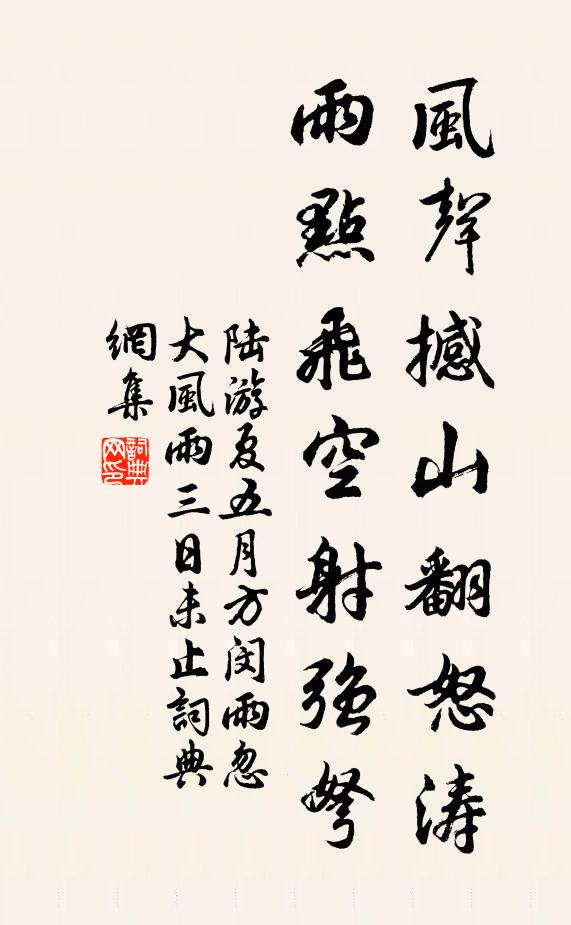 風聲撼山翻怒涛
雨點飛空射強弩
陆游夏五月方闵雨忽
大風雨三日未止詞典
網集
詞典网印